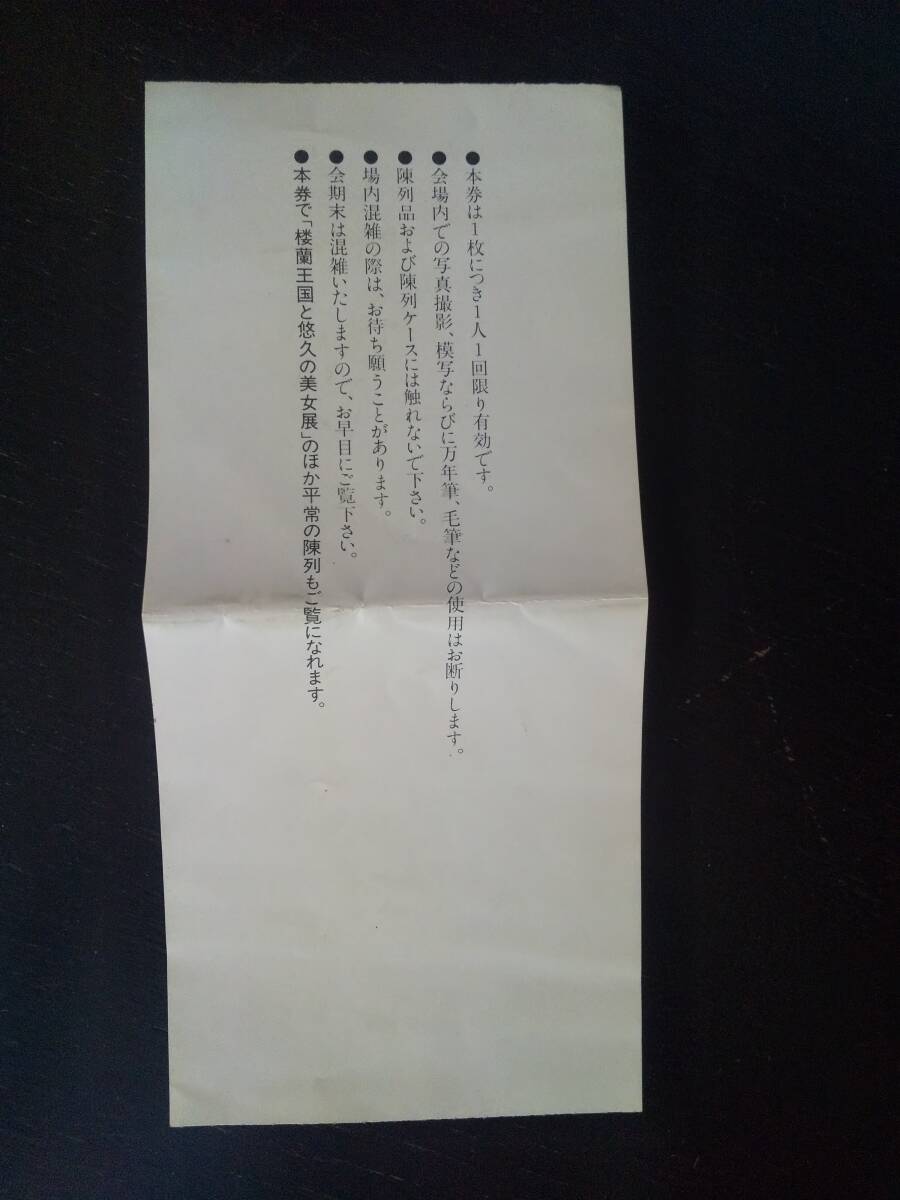 ●本券は1枚につき1人1回限り有効です。
●会場内での写真撮影、模写ならびに万年筆、毛筆などの使用はお断りします。
●陳列品および陳列ケースには触れないで下さい。
●場内混雑の際は、お待ち願うことがあります。
●会期末は混雑いたしますので、お早目にご覧下さい。
●本券で「楼蘭王国と悠久の美女展」のほか平常の陳列もご覧になれます。